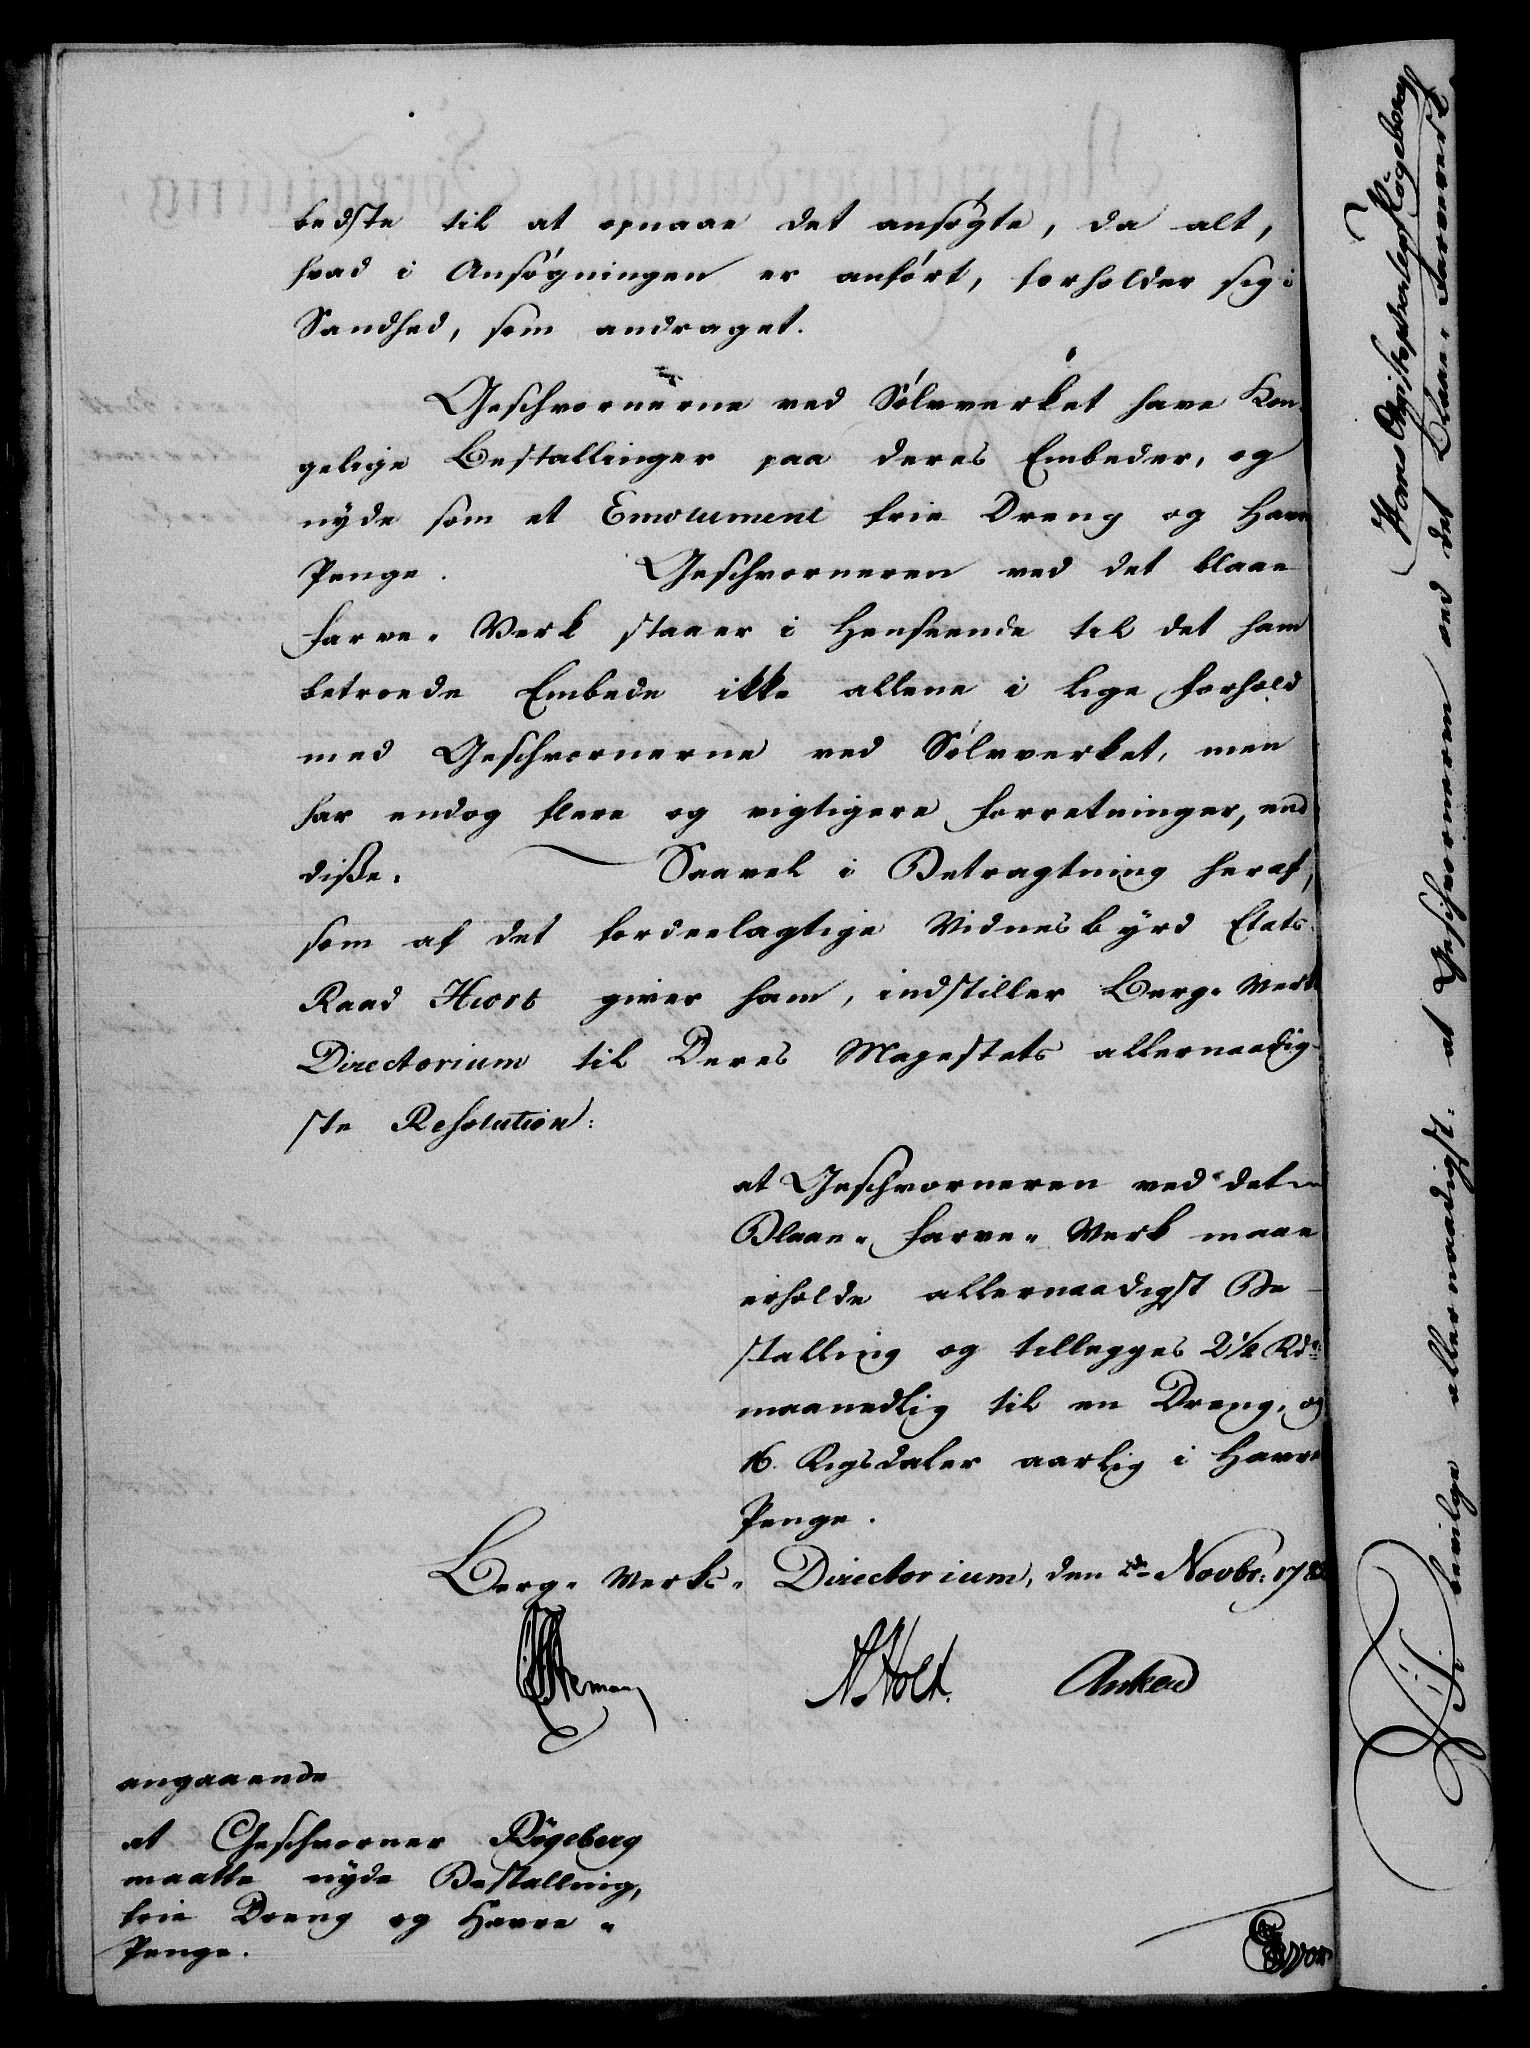 bedste til at opnaae det ansøgte, da alt,
hvad i Ansøgningen er anført, forholder sig i
Sandhed, som andraget.
Geschvornerne ved Sølvverket have Kon-
gelige Bestallinger paa deres Embeder, og
nyde som et Emolument frie Dreng og Havre
Penge. Geschvorneren ved det blaae
Farve-Verk staaer i Henseende til det ham
betroede Embede ikke allene i lige Forhold
med Geschvornerne ved Sølvverket, men
har endog flere og vigtigere Forretninger, end
disse. Saavel i Betragtning heraf,
som af det fordeelagtige Vidnesbyrd Etats-
Raad Hiort giver ham, indstiller Berg-Verks
Directorium til Deres Majestets allernaadig-
ste Resolution:
at Geschvorneren ved det
Blaae-Farve-Verk maae
erholde allernaadigst Be-
stalling og tillegges 2 1/2 Rdr
maanedlig til en Dreng, og
16 Rigsdaler aarlig i Havre
Penge.
Berg-Verks-Directorium, den Novbr: 17
N. Holt. Anker
angaaende
at Geschvorner Røgeberg
maatte nyde Bestalling,
frie Dreng og Havre-
Penge.
Vi bevilge allernaadigst: at Geschvorneren ved det Blaae-Farveverk
Hans Christopher Røgeberg